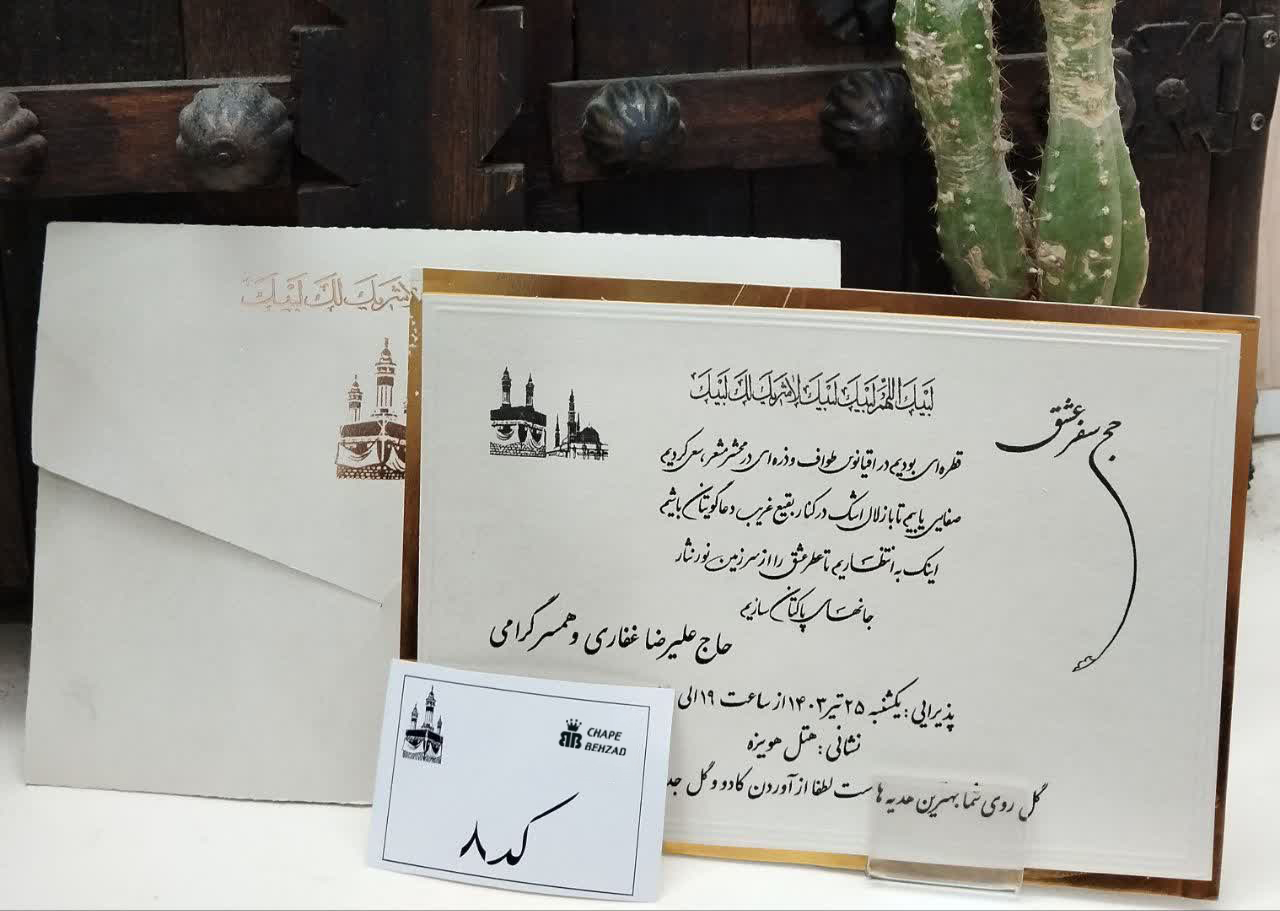 لاشریك لك لبیك
لبیك اللهم لبیك لبیك لاشریك لك لبیك
حج سفر عشق
قطره‌ای بودیم در اقیانوس طواف و ذره‌ای در محشر مشعر، سعی کردیم
صفایی یابیم تا با زلال اشک در کنار بقیع غریب دعاگویتان باشیم
اینک به انتظاریم تا عطر عشق را از سرزمین نور نثار
جانهای پاکتان سازیم
حاج علیرضا غفاری و همسر گرامی
پذیرایی: یکشنبه ۲۵ تیر ۱۴۰۳ از ساعت ۱۹ الی
نشانی: هتل هویزه
گل روی شما بهترین هدیه هاست لطفا از آوردن کادو و گل
CHAPE
BEHZAD
کد ۸